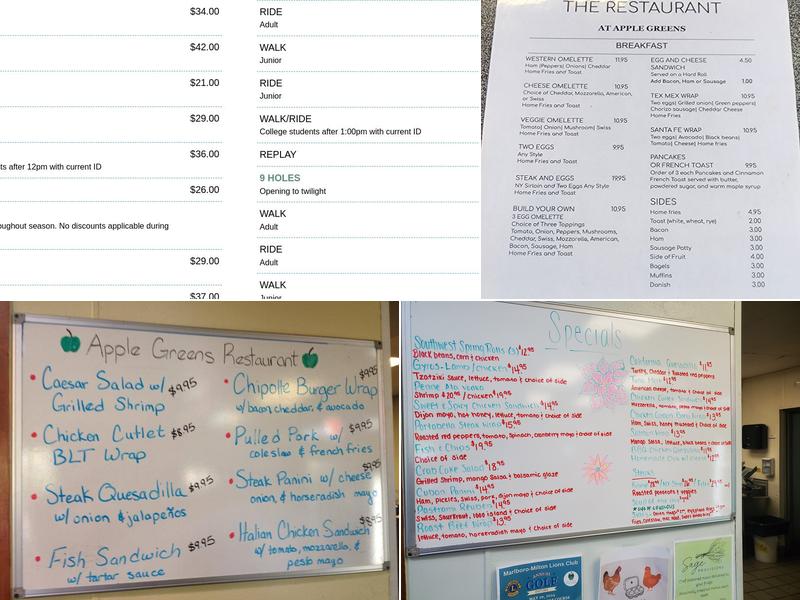 $34.00
$42.00
$21.00
$29.00
$36.00
ts after 12pm with current ID
$26.00
oughout season. No discounts applicable during
$29.00
$37.00
RIDE
Adult
WALK
Junior
RIDE
Junior
WALK/RIDE
College students after 1:00pm with current ID
REPLAY
9 HOLES
Opening to twilight
WALK
Adult
RIDE
Adult
WALK
Junior
THE RESTAURANT
AT APPLE GREENS
BREAKFAST
WESTERN OMELETTE 11.95
Ham |Peppers| Onions| Cheddar
Home Fries and Toast
CHEESE OMELETTE 10.95
Choice of Cheddar, Mozzarella, American,
or Swiss
Home Fries and Toast
VEGGIE OMELETTE 10.95
Tomato| Onion| Mushroom| Swiss
Home Fries and Toast
TWO EGGS 9.95
Any Style
Home Fries and Toast
STEAK AND EGGS 19.95
NY Sirloin and Two Eggs Any Style
Home Fries and Toast
BUILD YOUR OWN 10.95
3 EGG OMELETTE
Choice of Three Toppings
Tomato, Onion, Peppers, Mushrooms,
Cheddar, Swiss, Mozzarella, American,
Bacon, Sausage, Ham
Home Fries and Toast
EGG AND CHEESE 4.50
SANDWICH
Served on a Hard Roll
Add Bacon, Ham or Sausage 1.00
TEX MEX WRAP 10.95
Two eggs| Grilled onion| Green peppers|
Chorizo sausage| Cheddar Cheese
Home Fries
SANTA FE WRAP 10.95
Two eggs| Avocado| Black beans|
Tomato| Cheese| Home fries
PANCAKES
OR FRENCH TOAST 9.95
Order of 3 each Pancakes and Cinnamon
French Toast served with butter,
powdered sugar, and warm maple syrup
SIDES
Home fries 4.95
Toast (white, wheat, rye) 2.00
Bacon 3.00
Ham 3.00
Sausage Patty 3.00
Side of Fruit 4.00
Bagels 3.00
Muffins 3.00
Danish 3.00
Apple Greens Restaurant
• Caesar Salad w/ $9.95
Grilled Shrimp
• Chicken Cutlet $8.95
BLT Wrap
• Steak Quesadilla $9.95
w/ onion & jalapeños
• Fish Sandwich $9.95
w/ tartar sauce
• Chipotle Burger Wrap $9.95
w/ bacon, cheddar, & avocado
• Pulled Pork w/ $9.95
coleslaw & french fries
• Steak Panini w/ cheese
onion, & horseradish mayo
• Italian Chicken Sandwich
w/ tomato, mozzarella, &
pesto mayo
Specials
Southwest Spring Rolls (3) $12.95
Black beans, corn & chicken
Gyros-Lamb/chicken $14.95
Tzatziki Sauce, lettuce, tomato & choice of side
Penne Ala vodka
Shrimp $20.95 / chicken $19.95
Sweet & Spicy Chicken Sandwich $14.95
Dijon mayo, hot honey, lettuce, tomato & choice of side
Portobello Steak Wrap $15.95
Roasted red peppers, tomato, Spinach, cranberry mayo & choice of side
Fish & Chips $19.95
Choice of side
Crab Cake Salad $18.95
Grilled Shrimp, mango Salsa & balsamic glaze
Cuban Panini $14.95
Ham, pickles, Swiss, pork, dijon mayo & choice of side
Pastrami Reuben $14.95
Swiss, Sauerkraut, 1000 island & choice of side
Roast Beef Wrap $13.95
lettuce, tomato, horseradish mayo & choice of side
California Quesadilla
Turkey, Cheddar & Roasted red peppers
Tuna Melt
American cheese, tomato & choice of side
Chicken Cutlet Sandwich
Chicken Cordon Bleu Wrap
Ham, Swiss, honey mustard & choice of side
Salmon Wrap
BBQ Chicken Quesadilla
Steaks
Roasted potatoes & veggies
Marlboro-Milton Lions Club
ANNUAL
GOLF
Sage
PROVISIONS